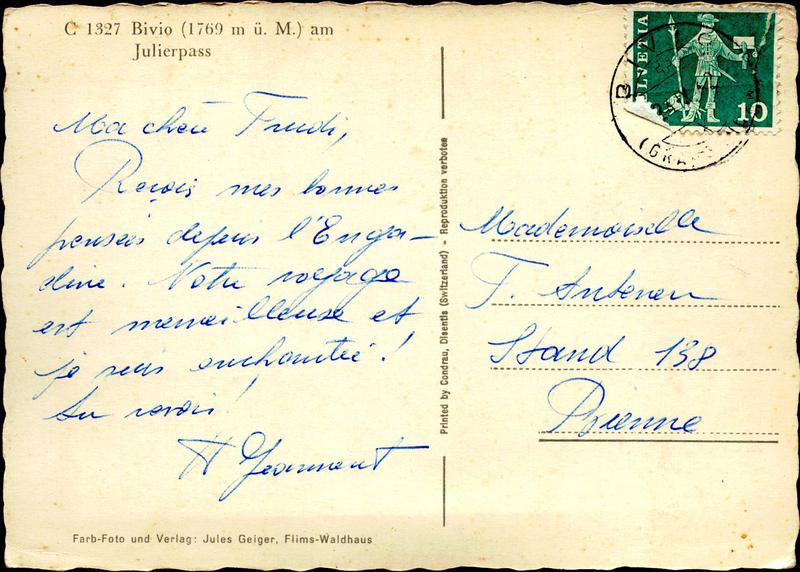 C 1327 Bivio (1769 m ü. M.) am
Julierpass
HELVETIA
10
BIV
(GRA
Ma chère Trudi,
Reçois mes bonnes
pensées depuis l'Enga-
dine. Notre voyage
est merveilleuse et
je suis enchantée!
Au revoir!
H Jeanneret
Printed by Condrau, Disentis (Switzerland) - Reproduktion verboten
Mademoiselle
T. Anteren
Stand 138
Bienne
Farb-Foto und Verlag: Jules Geiger, Flims-Waldhaus